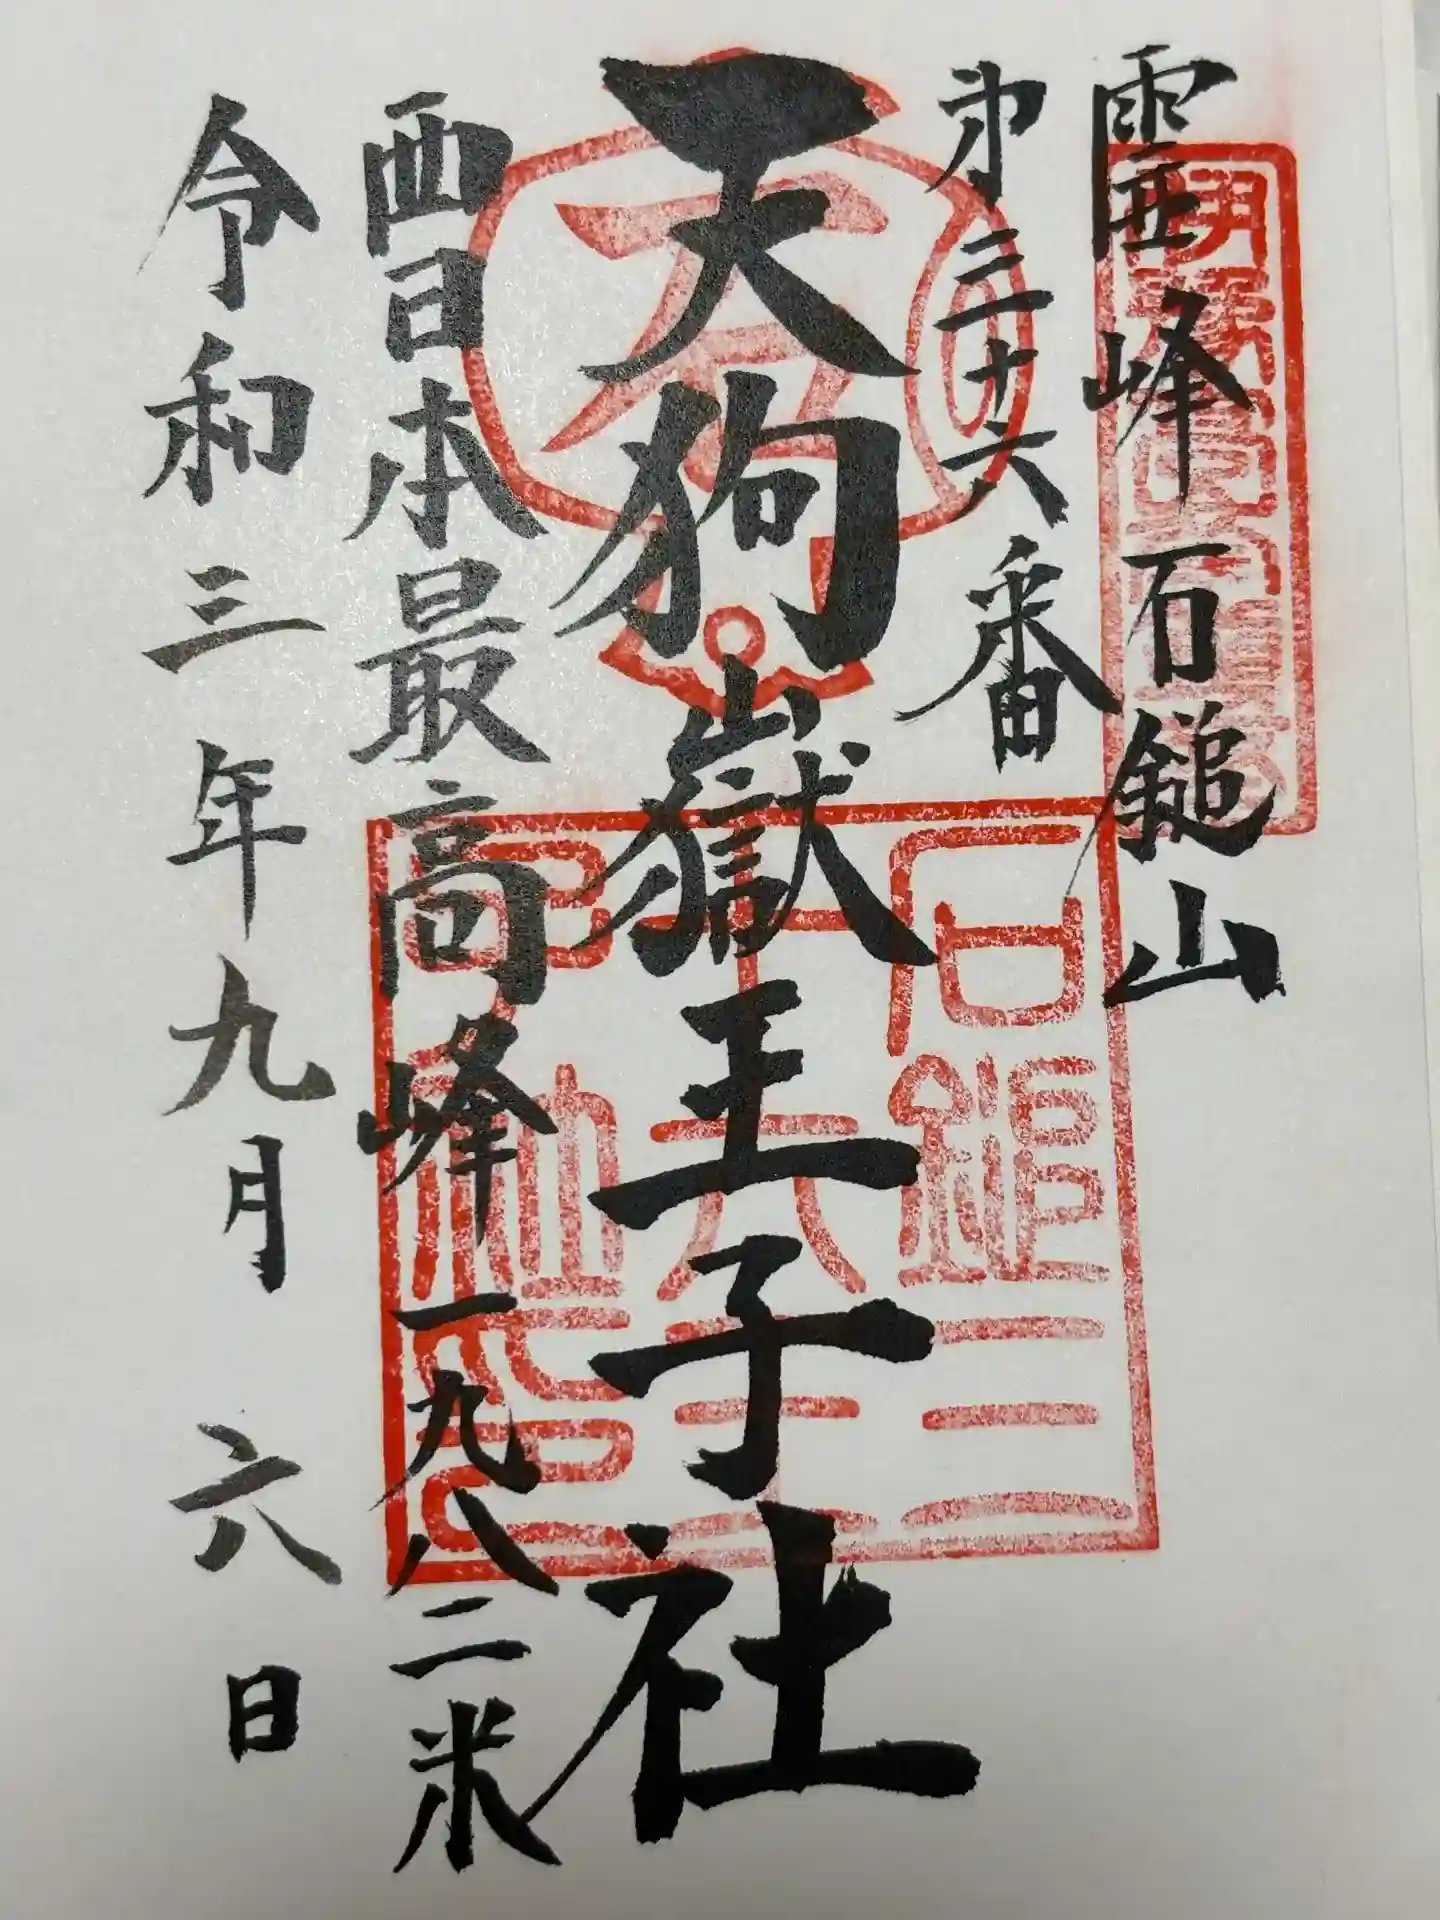 霊峰石鎚山
第三十六番
天狗嶽王子社
西日本最高峰一九八二米
令和三年九月六日
石鎚三
十六王子